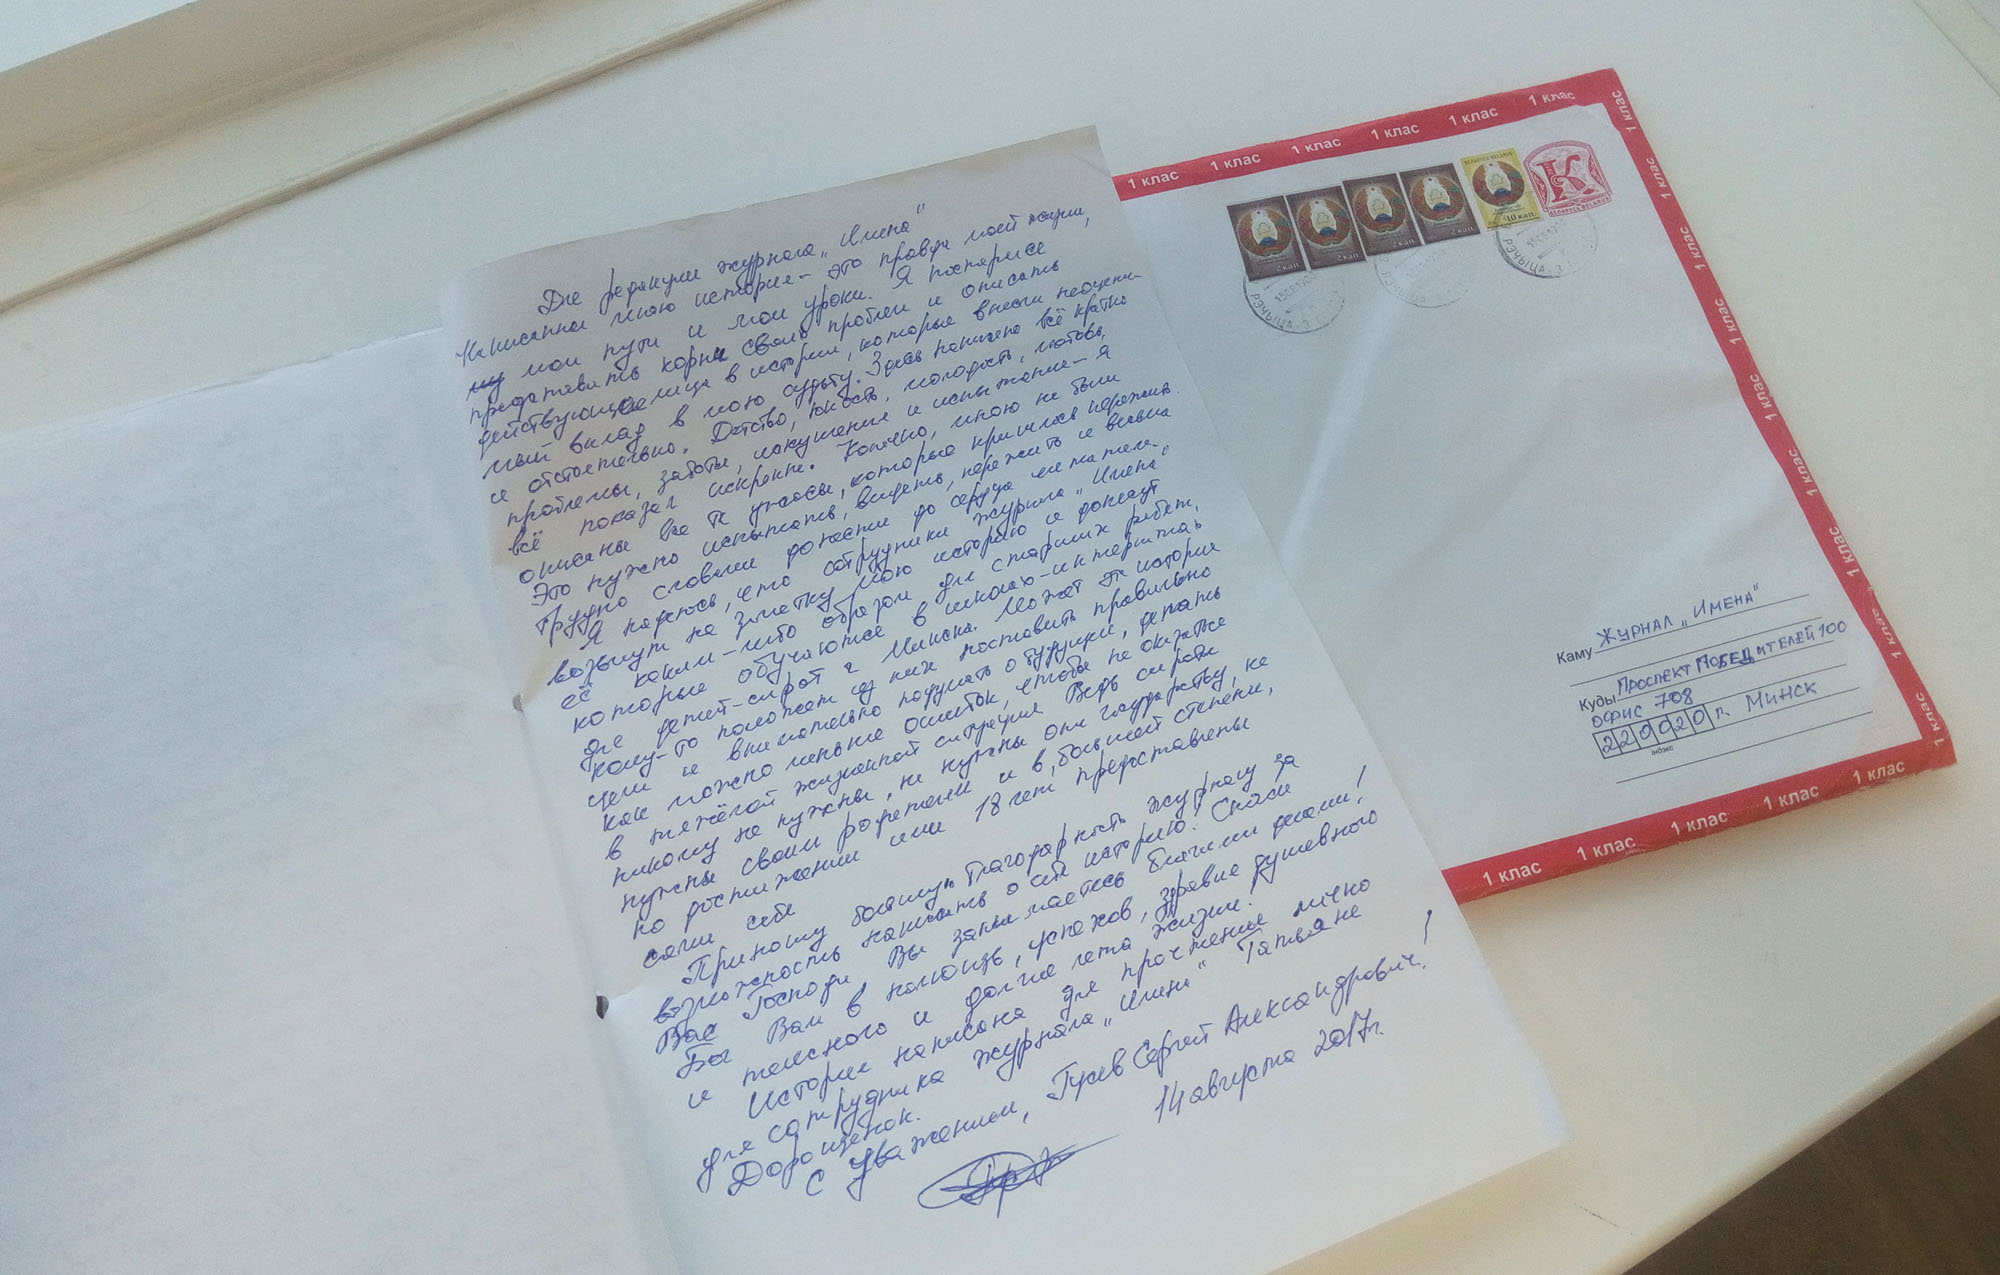 Для редакции журнала „Имена"
Написанная мною история – это правда моей жизни,
мои пути и мои уроки. Я постарался
представить корни своих проблем и описать
действующие лица в истории, которые внесли неоцени-
мый вклад в мою судьбу. Здесь написано всё кратко
и обстоятельно. Детство, юность, молодость, любовь,
проблемы, заботы, искушения и испытания – я
всё показал искренне. Конечно, мною не были
описаны все те ужасы, которые пришлось пережить.
Это нужно испытать, видеть, пережить и весьма
трудно словами донести до сердца читателя.
Я надеюсь, что сотрудники журнала „Имена"
возьмут на заметку мою историю и донесут
её каким-либо образом для старших ребят,
которые обучаются в школах-интернатах
для детей-сирот г. Минска. Может эта история
кому-то поможет из них поставить правильно
цели и внимательно подумать о будущем, делать
как можно меньше ошибок, чтобы не оказаться
в тяжёлой жизненной ситуации. Ведь сироты
никому не нужны, не нужны они государству, не
нужны своим родителям и в большей степени,
по достижении ими 18 лет предоставлены
сами себе.
Приношу большую благодарность журналу за
возможность написать о себе историю. Спаси
Вас Господи. Вы занимаетесь благими делами!
Бог Вам в помощь, успехов, здравия душевного
и телесного и долгие лета жизни!
История написана для прочтения лично
для сотрудника журнала „Имена" Татьяне
Дорощенок.
С уважением, Гусев Сергей Александрович.
14 августа 2017 г.
1 клас 1 клас 1 клас 1 клас 1 клас 1 клас
2 кап 2 кап 2 кап 2 кап 10 кап
К
РЭЧЫЦА-3
Каму Журнал „Имена"
Куды Проспект Победителей 100
офис 708
220020 г. Минск
індэкс
1 клас 1 клас 1 клас 1 клас 1 клас 1 клас 1 клас 1 клас
1 клас 1 клас 1 клас 1 клас 1 клас